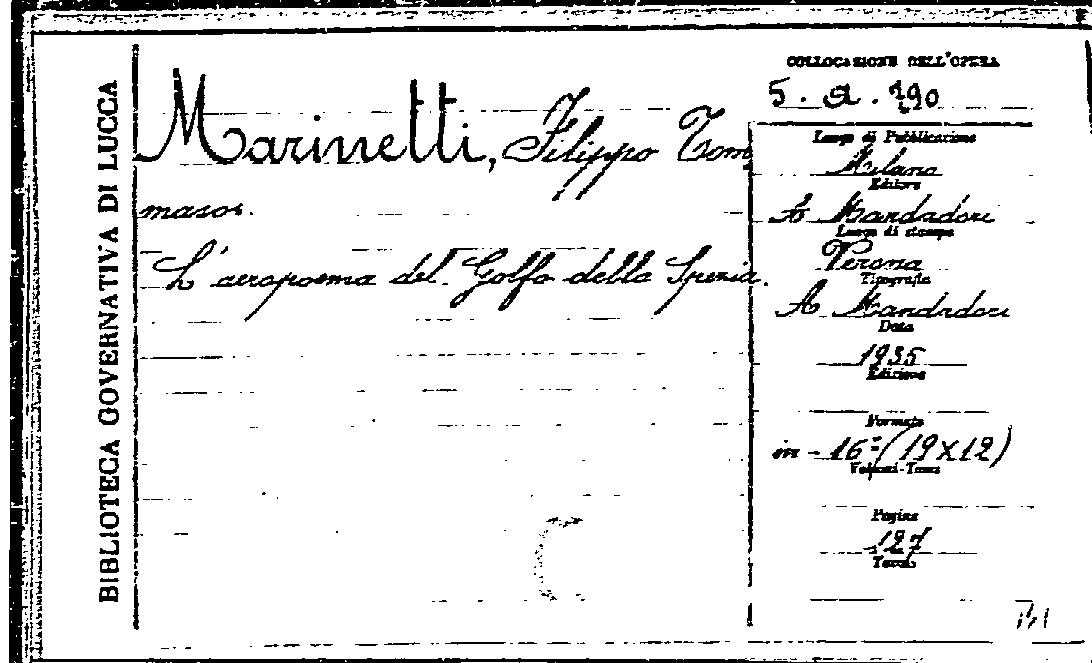 BIBLIOTECA GOVERNATIVA DI LUCCA
Marinetti, Filippo Tom
maso.
L'aeropoema del Golfo della Spezia.
COLLOCAZIONE DELL'OPERA
5. a. 190
Luogo di Pubblicazione
Milano
Editore
A Mondadori
Luogo di stampa
Verona
Tipografia
A Mondadori
Data
1935
Edizione
Formato
in - 16º (19X12)
Volumi-Tomi
Pagine
127
Tavole